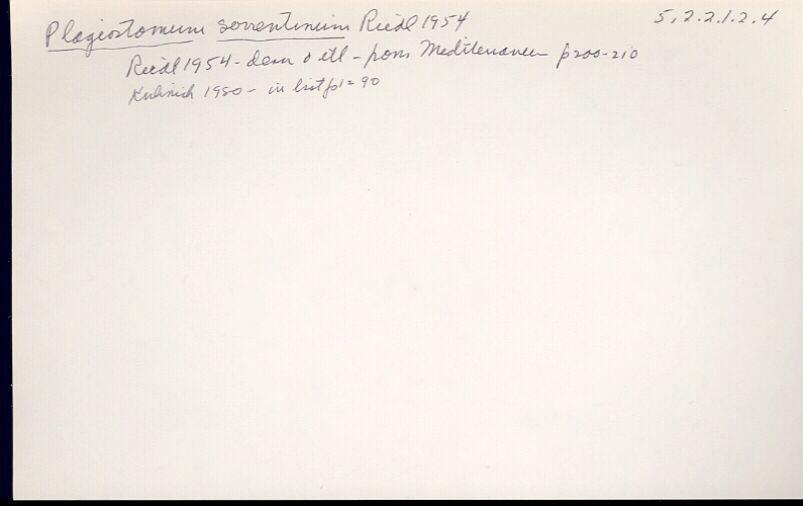 Plagiostomum sorrentinum Riedl 1954 5.2.2.1.2.4
Riedl 1954 - desc & ill - from Mediterranean p200-210
Kulinich 1980 - in list p 90